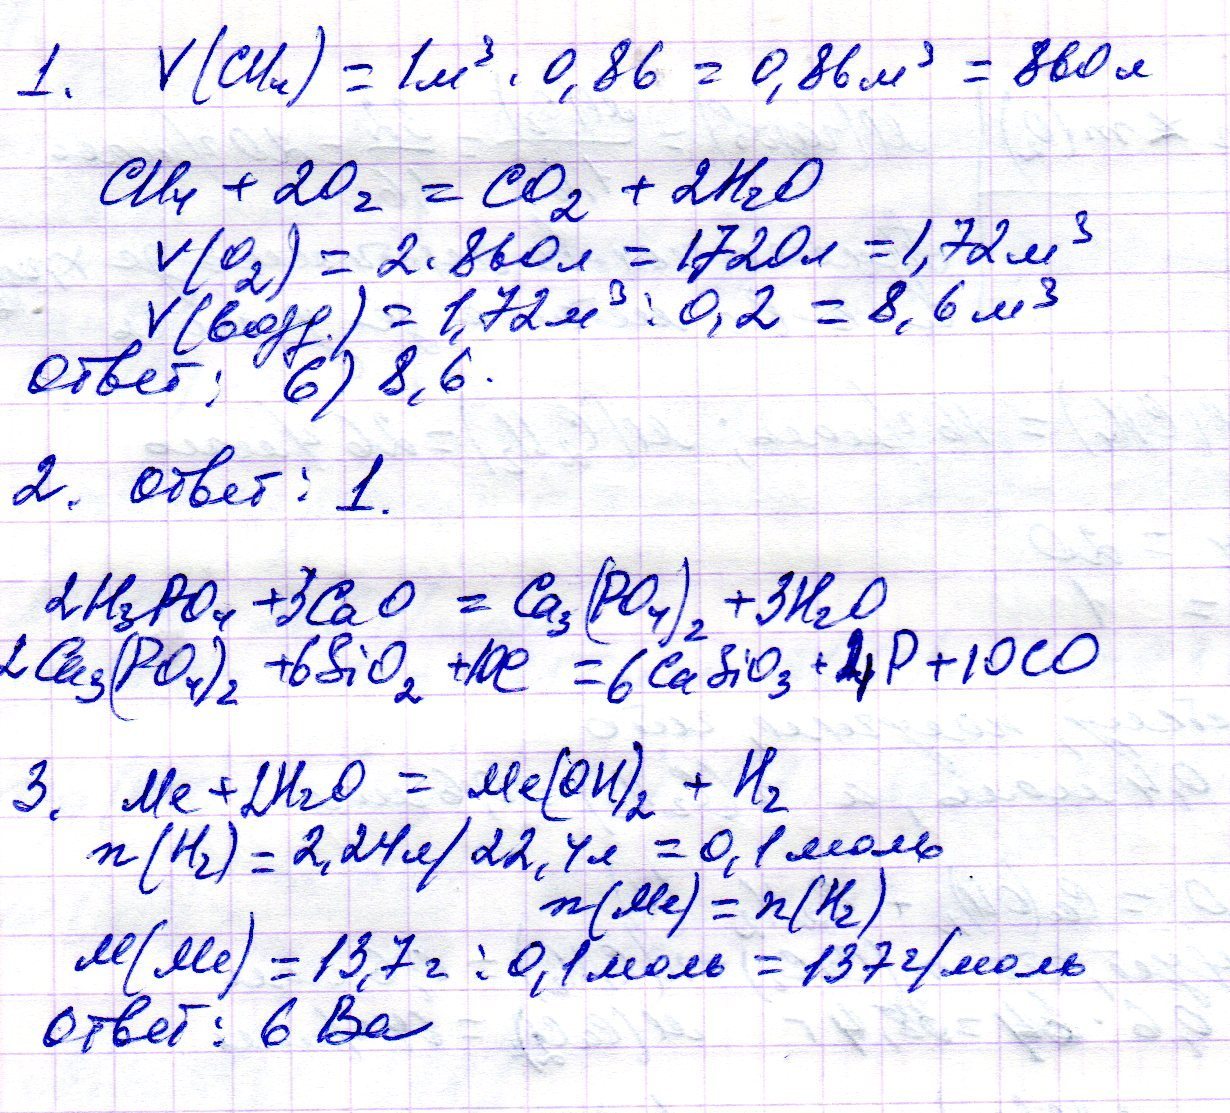 1. V(CH₄) = 1м³ · 0,86 = 0,86м³ = 860л
CH₄ + 2O₂ = CO₂ + 2H₂O
V(O₂) = 2 · 860л = 1720л = 1,72м³
V(возд.) = 1,72м³ : 0,2 = 8,6м³
Ответ: б) 8,6.
2. Ответ: 1.
2H₃PO₄ + 3CaO = Ca₃(PO₄)₂ + 3H₂O
2Ca₃(PO₄)₂ + 6SiO₂ + 10C = 6CaSiO₃ + 4P + 10CO
3. Me + 2H₂O = Me(OH)₂ + H₂
n(H₂) = 2,24л/22,4л = 0,1моль
n(Me) = n(H₂)
M(Me) = 13,7г : 0,1моль = 137г/моль
Ответ: б Ba